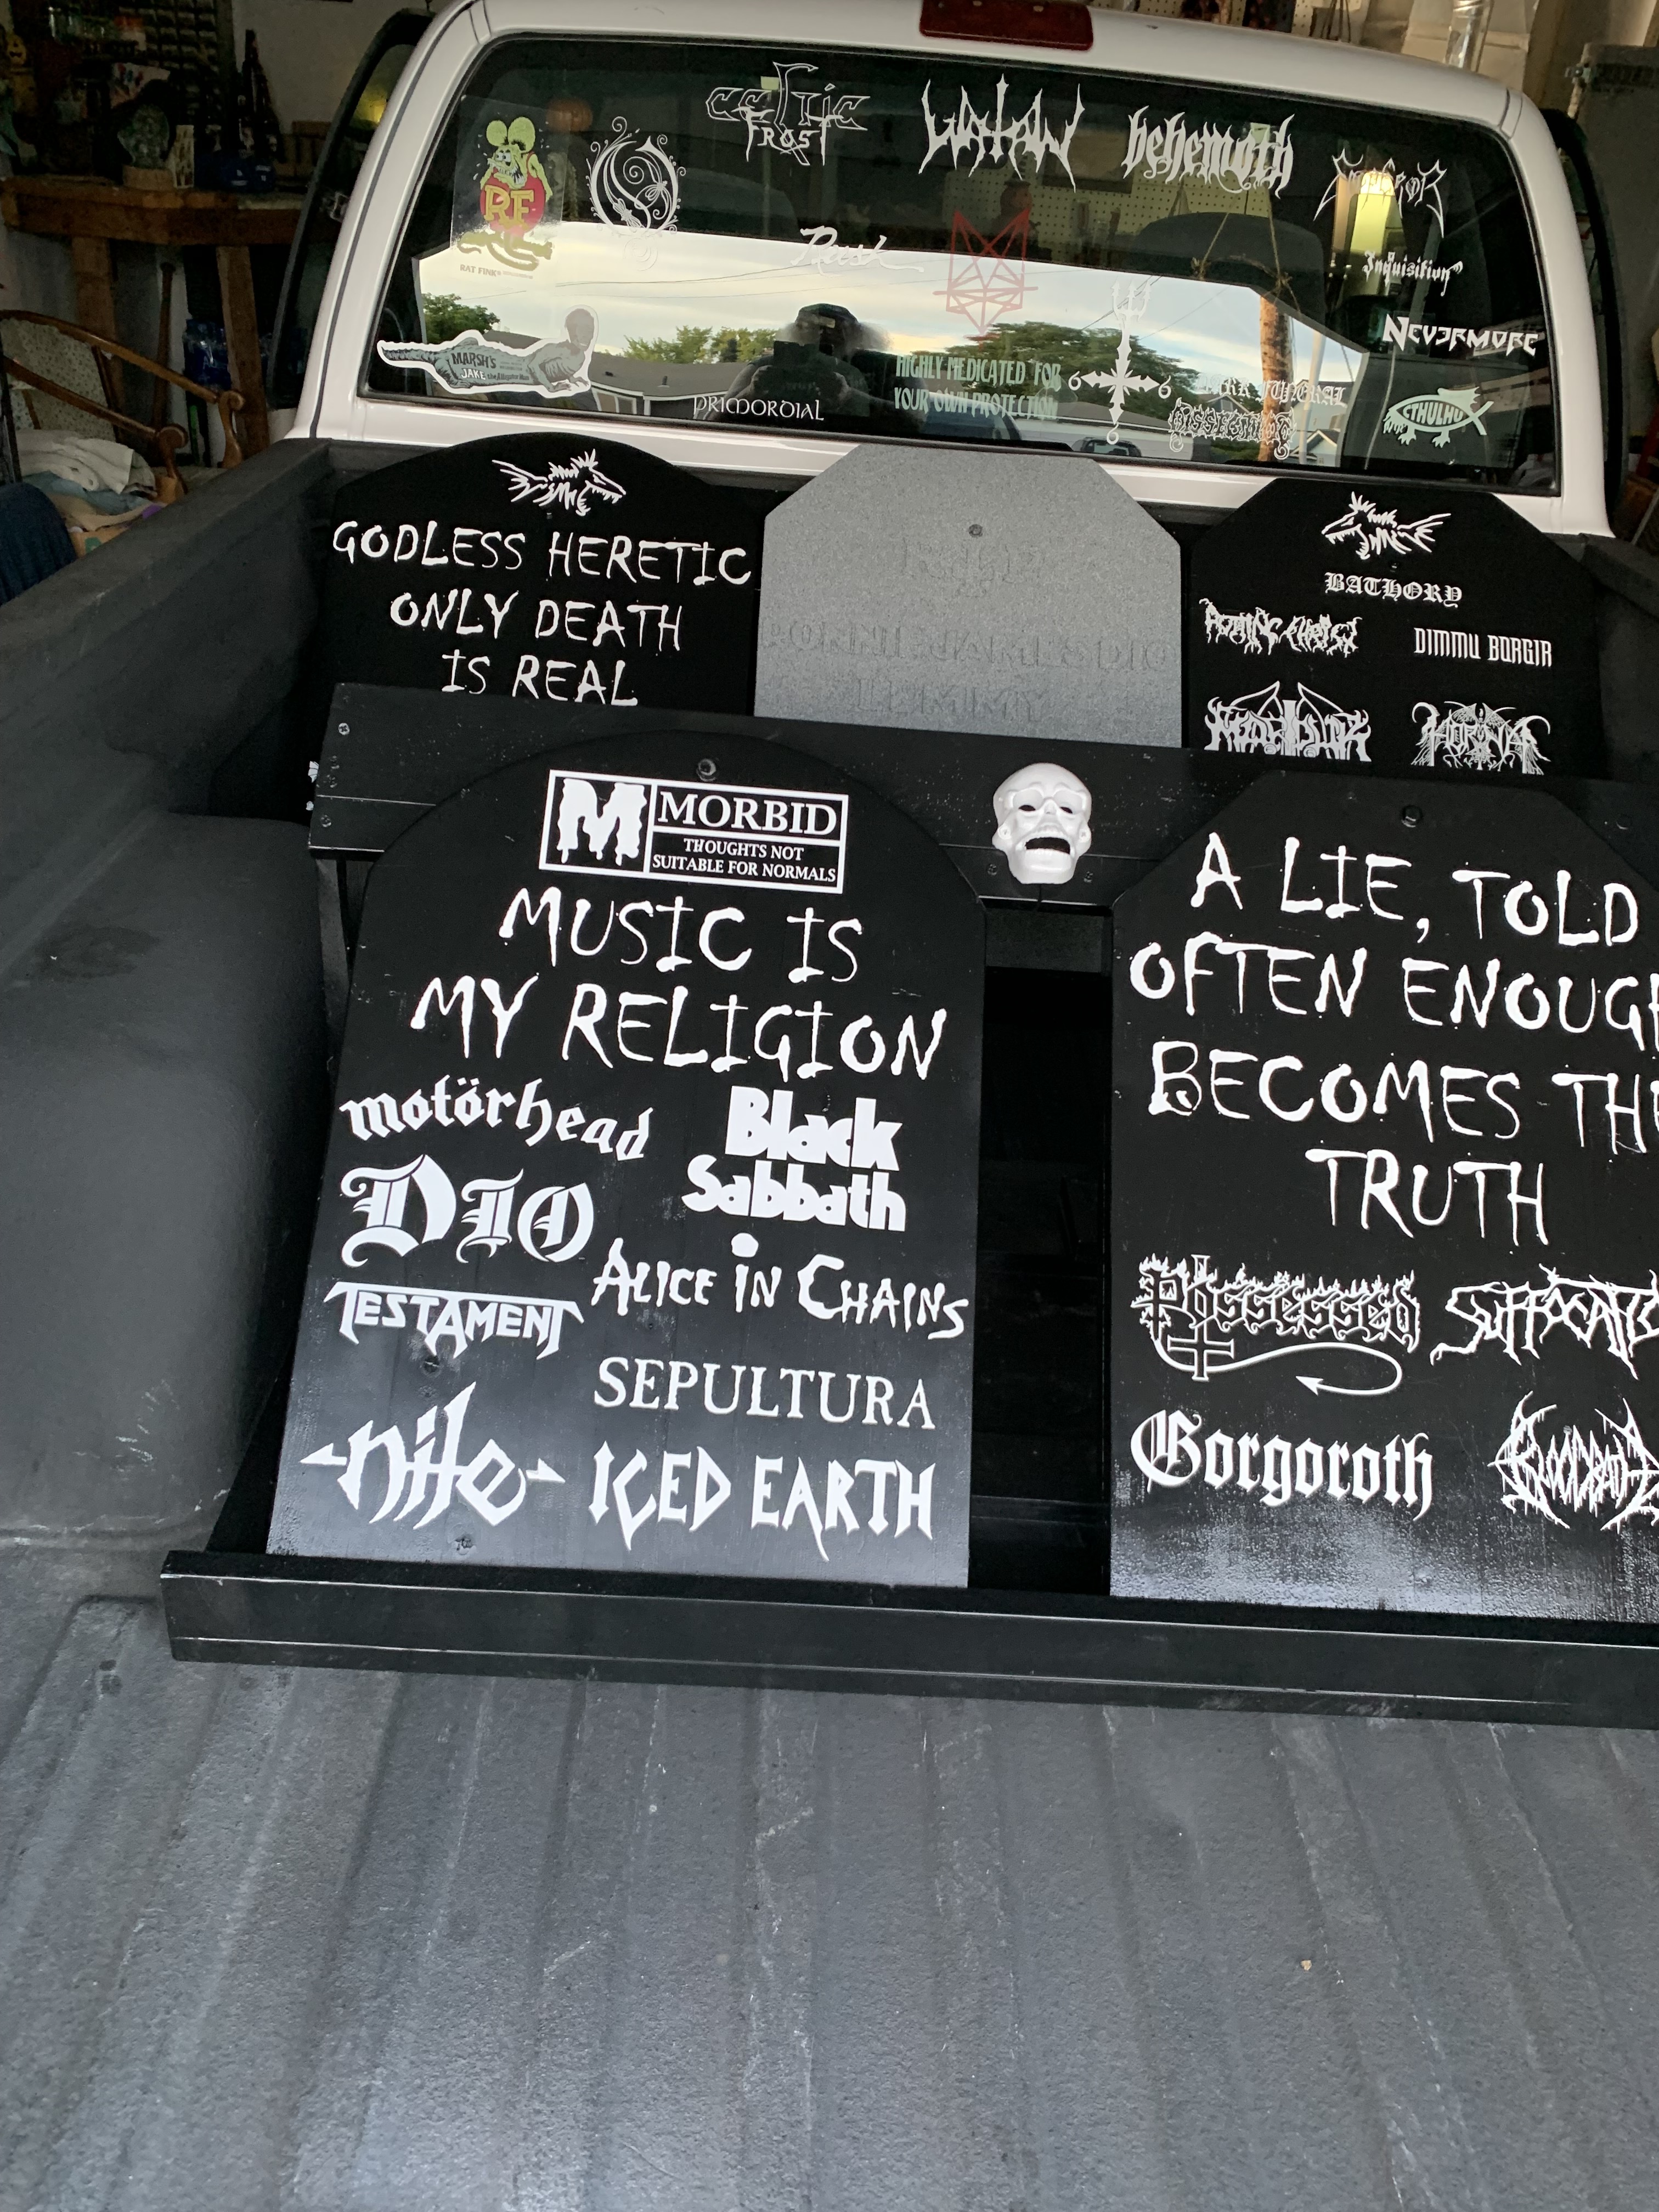 celtic
FROST
WATAIN
behemoth
EMPEROR
RF
RAT FINK
Rush
Inquisition
NEVERMORE
MARSH'S
JAKE the Alligator Man
PRIMORDIAL
HIGHLY MEDICATED FOR
YOUR OWN PROTECTION
6 6
6
DARK FUNERAL
DISSECTION
CTHULHU
GODLESS HERETIC
ONLY DEATH
IS REAL
RONNIE JAMES DIO
LEMMY
BATHORY
ROTTING CHRIST
DIMMU BORGIR
MARDUK
HORNA
M
MORBID
THOUGHTS NOT
SUITABLE FOR NORMALS
MUSIC IS
MY RELIGION
motörhead
Black
Sabbath
DIO
ALICE IN CHAINS
TESTAMENT
SEPULTURA
nile
ICED EARTH
A LIE, TOLD
OFTEN ENOUGH
BECOMES THE
TRUTH
Possessed
SUFFOCATIO
Gorgoroth
BLOODBATH